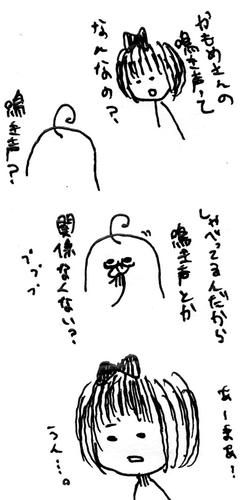 かもめさんの
鳴き声って
なんなの?
鳴き声?
しゃべってるんだから
鳴き声とか
関係なくない?
プププ
あーまぁ!
うん…。